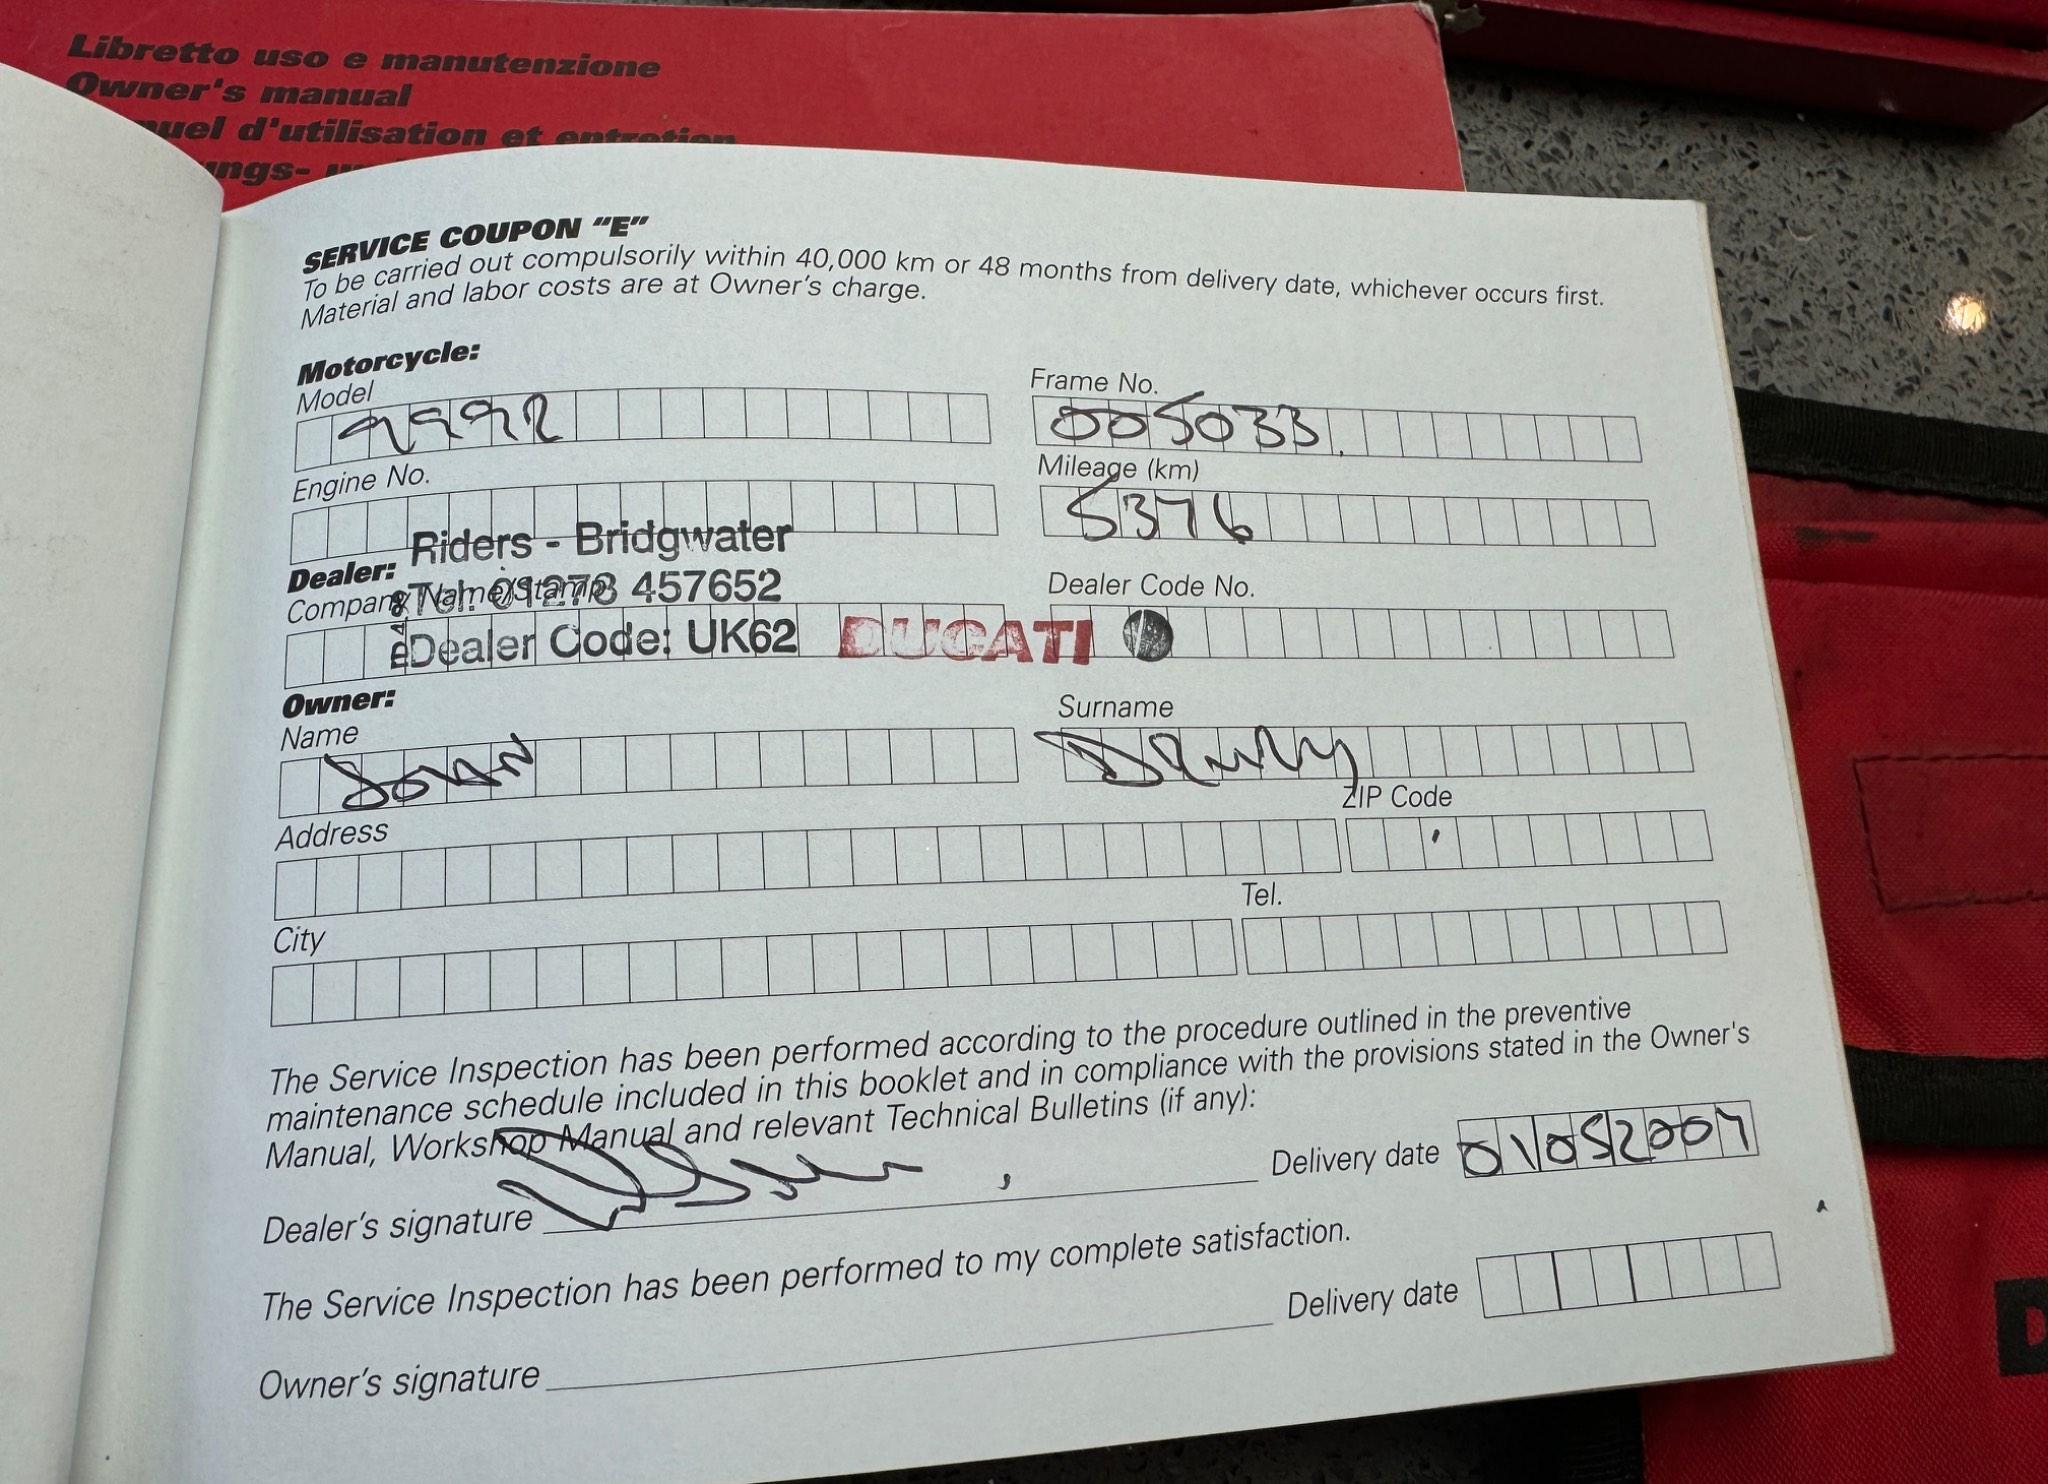 Libretto uso e manutenzione
Owner's manual
uel d'utilisation et entretien
ngs-
SERVICE COUPON "E"
To be carried out compulsorily within 40,000 km or 48 months from delivery date, whichever occurs first.
Material and labor costs are at Owner's charge.
Motorcycle:
Model
Frame No.
999R
005033
Engine No.
Mileage (km)
5376
Riders - Bridgwater
Dealer:
Company Name/Stamp
Tel: 01278 457652
Dealer Code No.
Dealer Code: UK62
DUCATI
Owner:
Name
Surname
JOHN
Address
ZIP Code
City
Tel.
The Service Inspection has been performed according to the procedure outlined in the preventive
maintenance schedule included in this booklet and in compliance with the provisions stated in the Owner's
Manual, Workshop Manual and relevant Technical Bulletins (if any):
Delivery date 01052007
Dealer's signature
The Service Inspection has been performed to my complete satisfaction.
Delivery date
Owner's signature
D